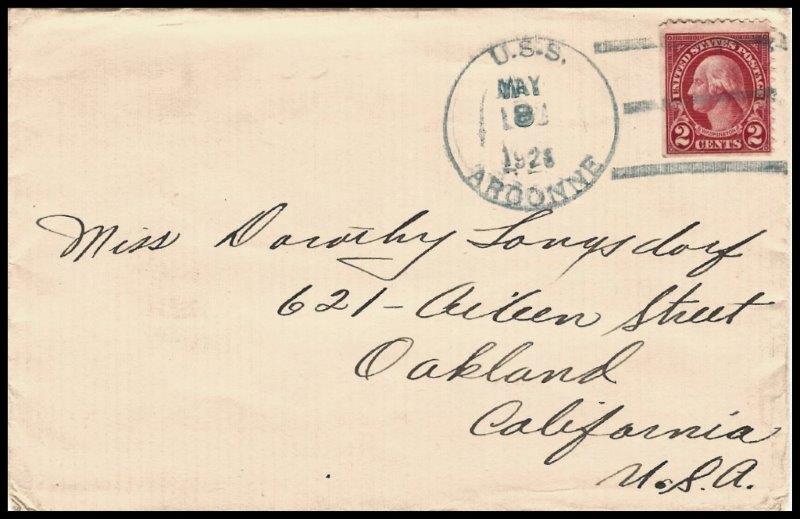 U.S.S.
MAY
8
1928
ARGONNE
UNITED STATES POSTAGE
WASHINGTON
2 CENTS 2
Miss Dorothy Longsdorf
621 - Aileen Street
Oakland
California
U.S.A.